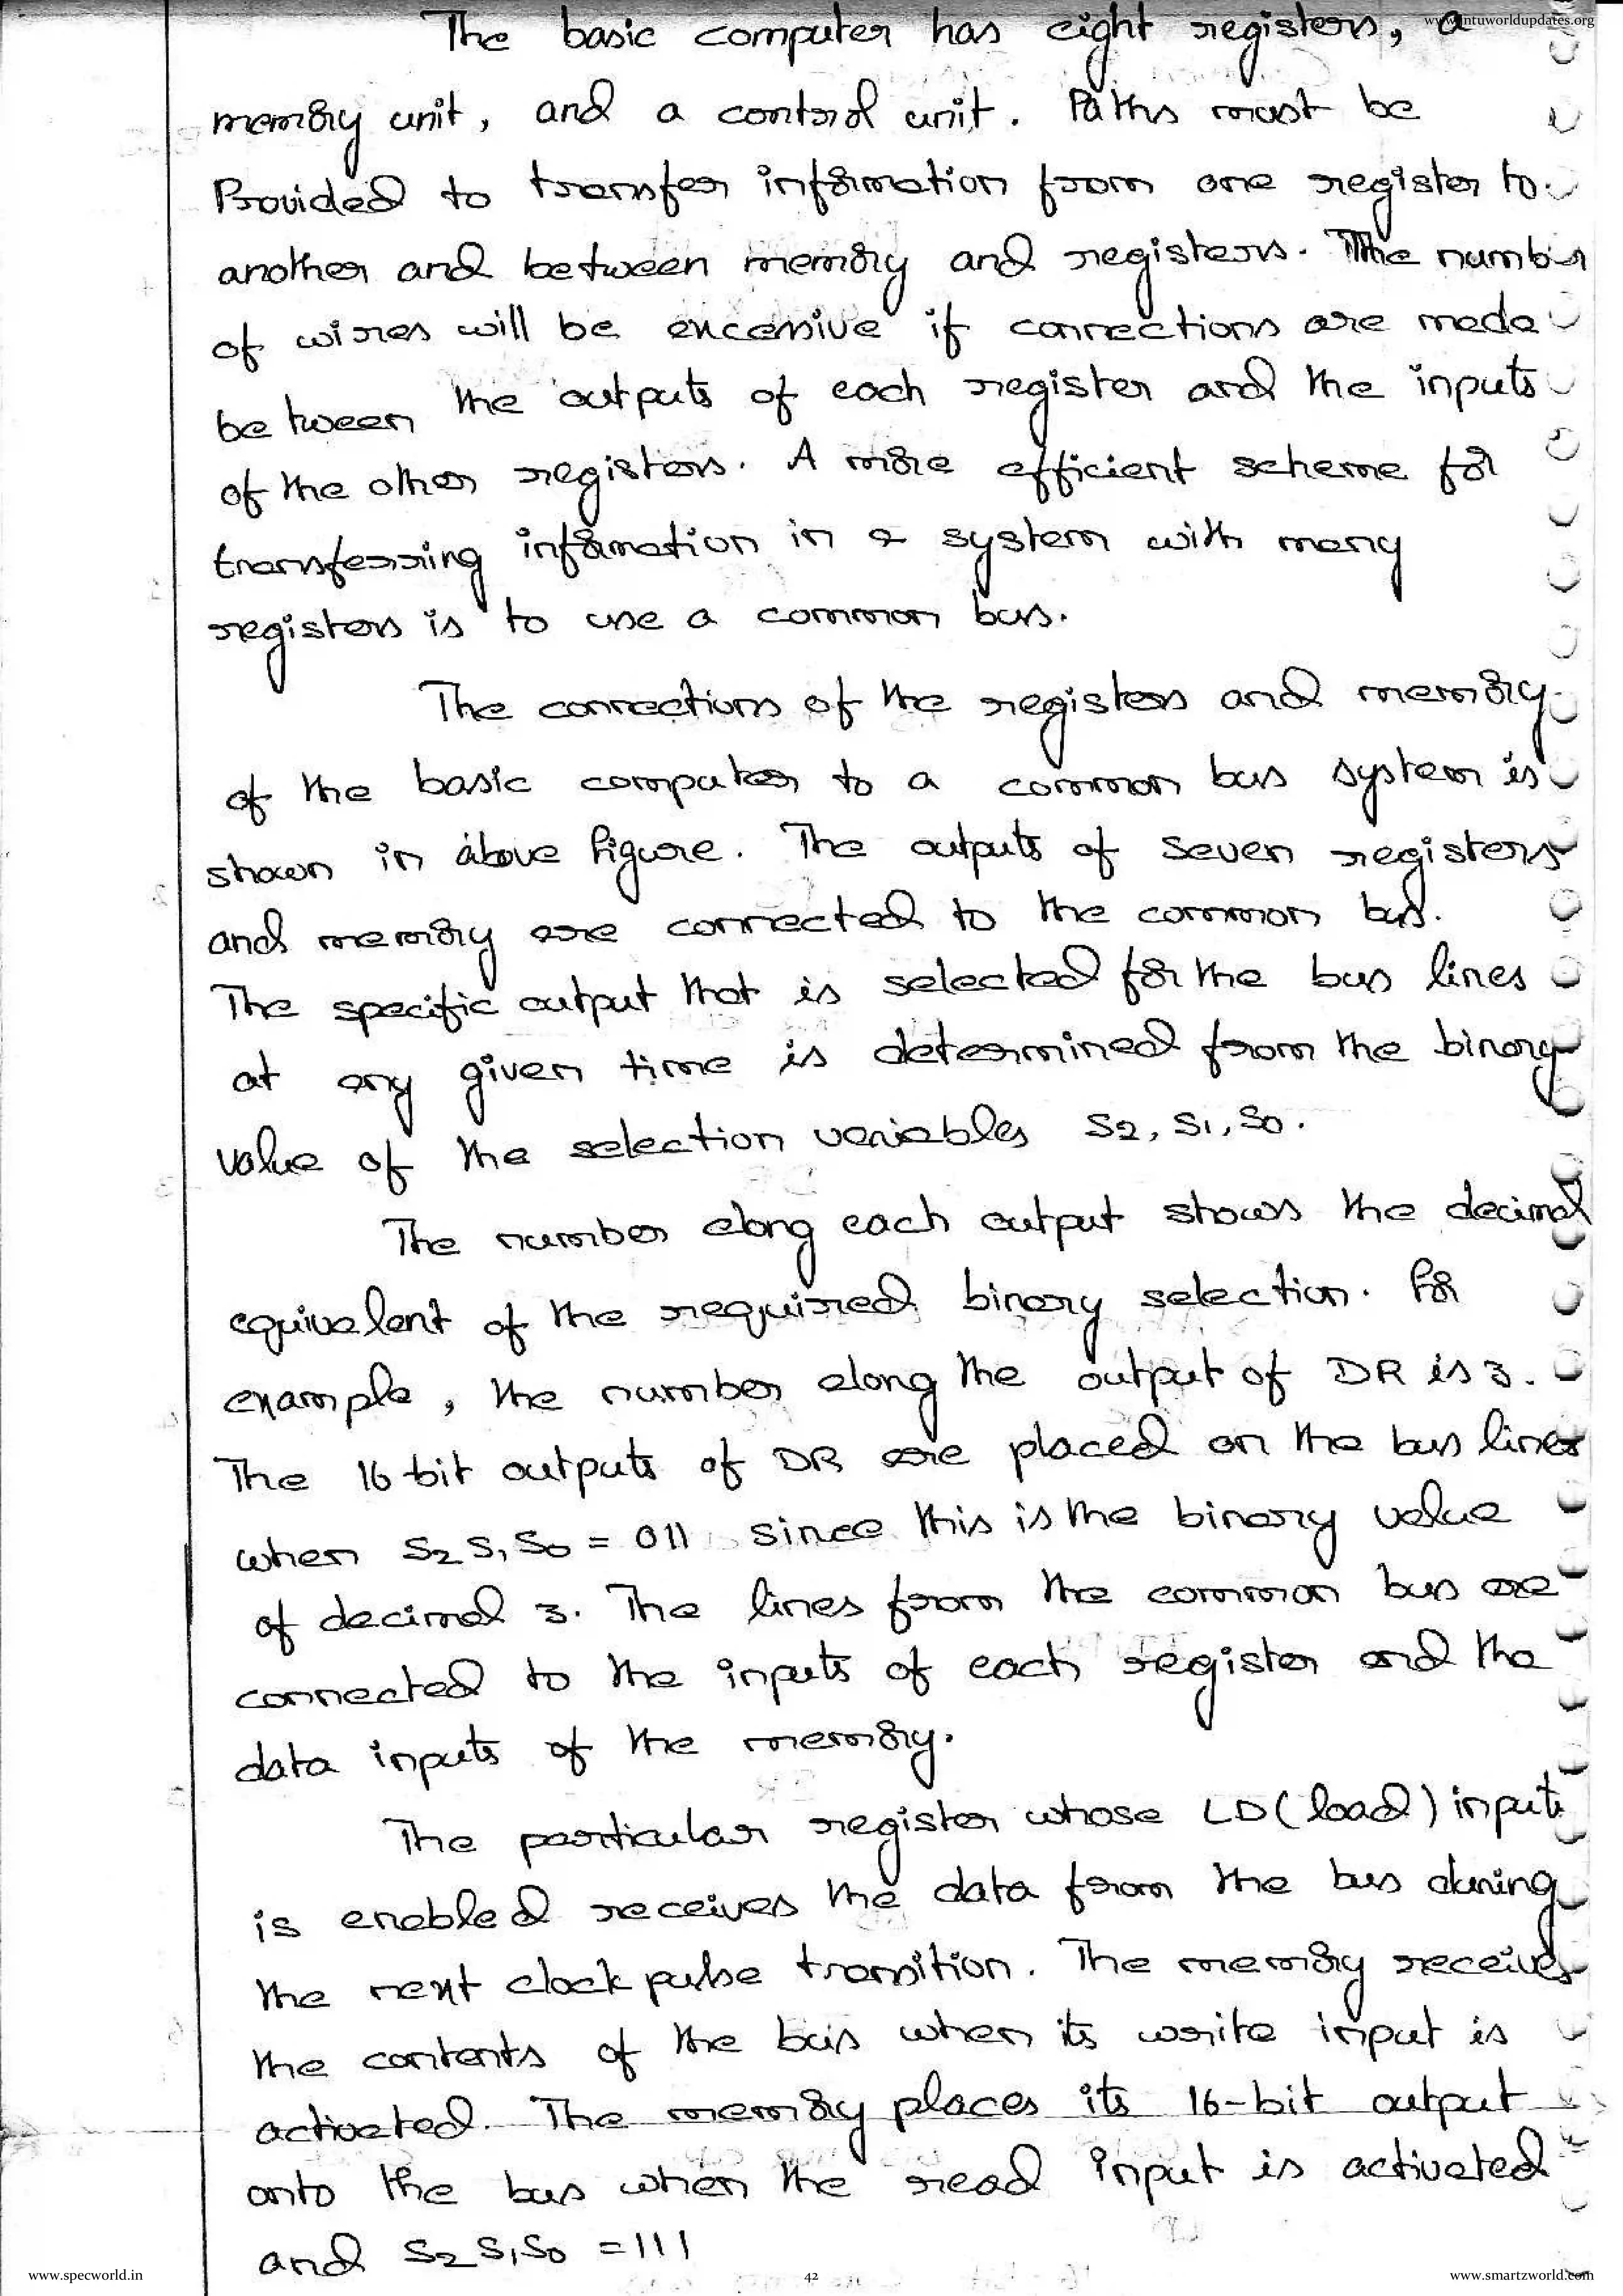 www.jntuworldupdates.org
The basic computer has eight registers, a
memory unit, and a control unit. Paths must be
Provided to transfer information from one register to
another and between memory and registers. The number
of wires will be excessive if connections are made
between the outputs of each register and the inputs
of the other registers. A more efficient scheme for
transferring information in a system with many
registers is to use a common bus.
The connections of the registers and memory
of the basic computer to a common bus system is
shown in above figure. The outputs of seven registers
and memory are connected to the common bus.
The specific output that is selected for the bus lines
at any given time is determined from the binary
value of the selection variables S2, S1, S0.
The number along each output shows the decimal
equivalent of the required binary selection. For
example, the number along the output of DR is 3.
The 16 bit outputs of DR are placed on the bus lines
when S2 S1 S0 = 011 since this is the binary value
of decimal 3. The lines from the common bus are
connected to the inputs of each register and the
data inputs of the memory.
The particular register whose LD (load) input
is enabled receives the data from the bus during
the next clock pulse transition. The memory receives
the contents of the bus when its write input is
activated. The memory places its 16-bit output
onto the bus when the read input is activated
and S2 S1 S0 = 111
www.specworld.in
42
www.smartzworld.com